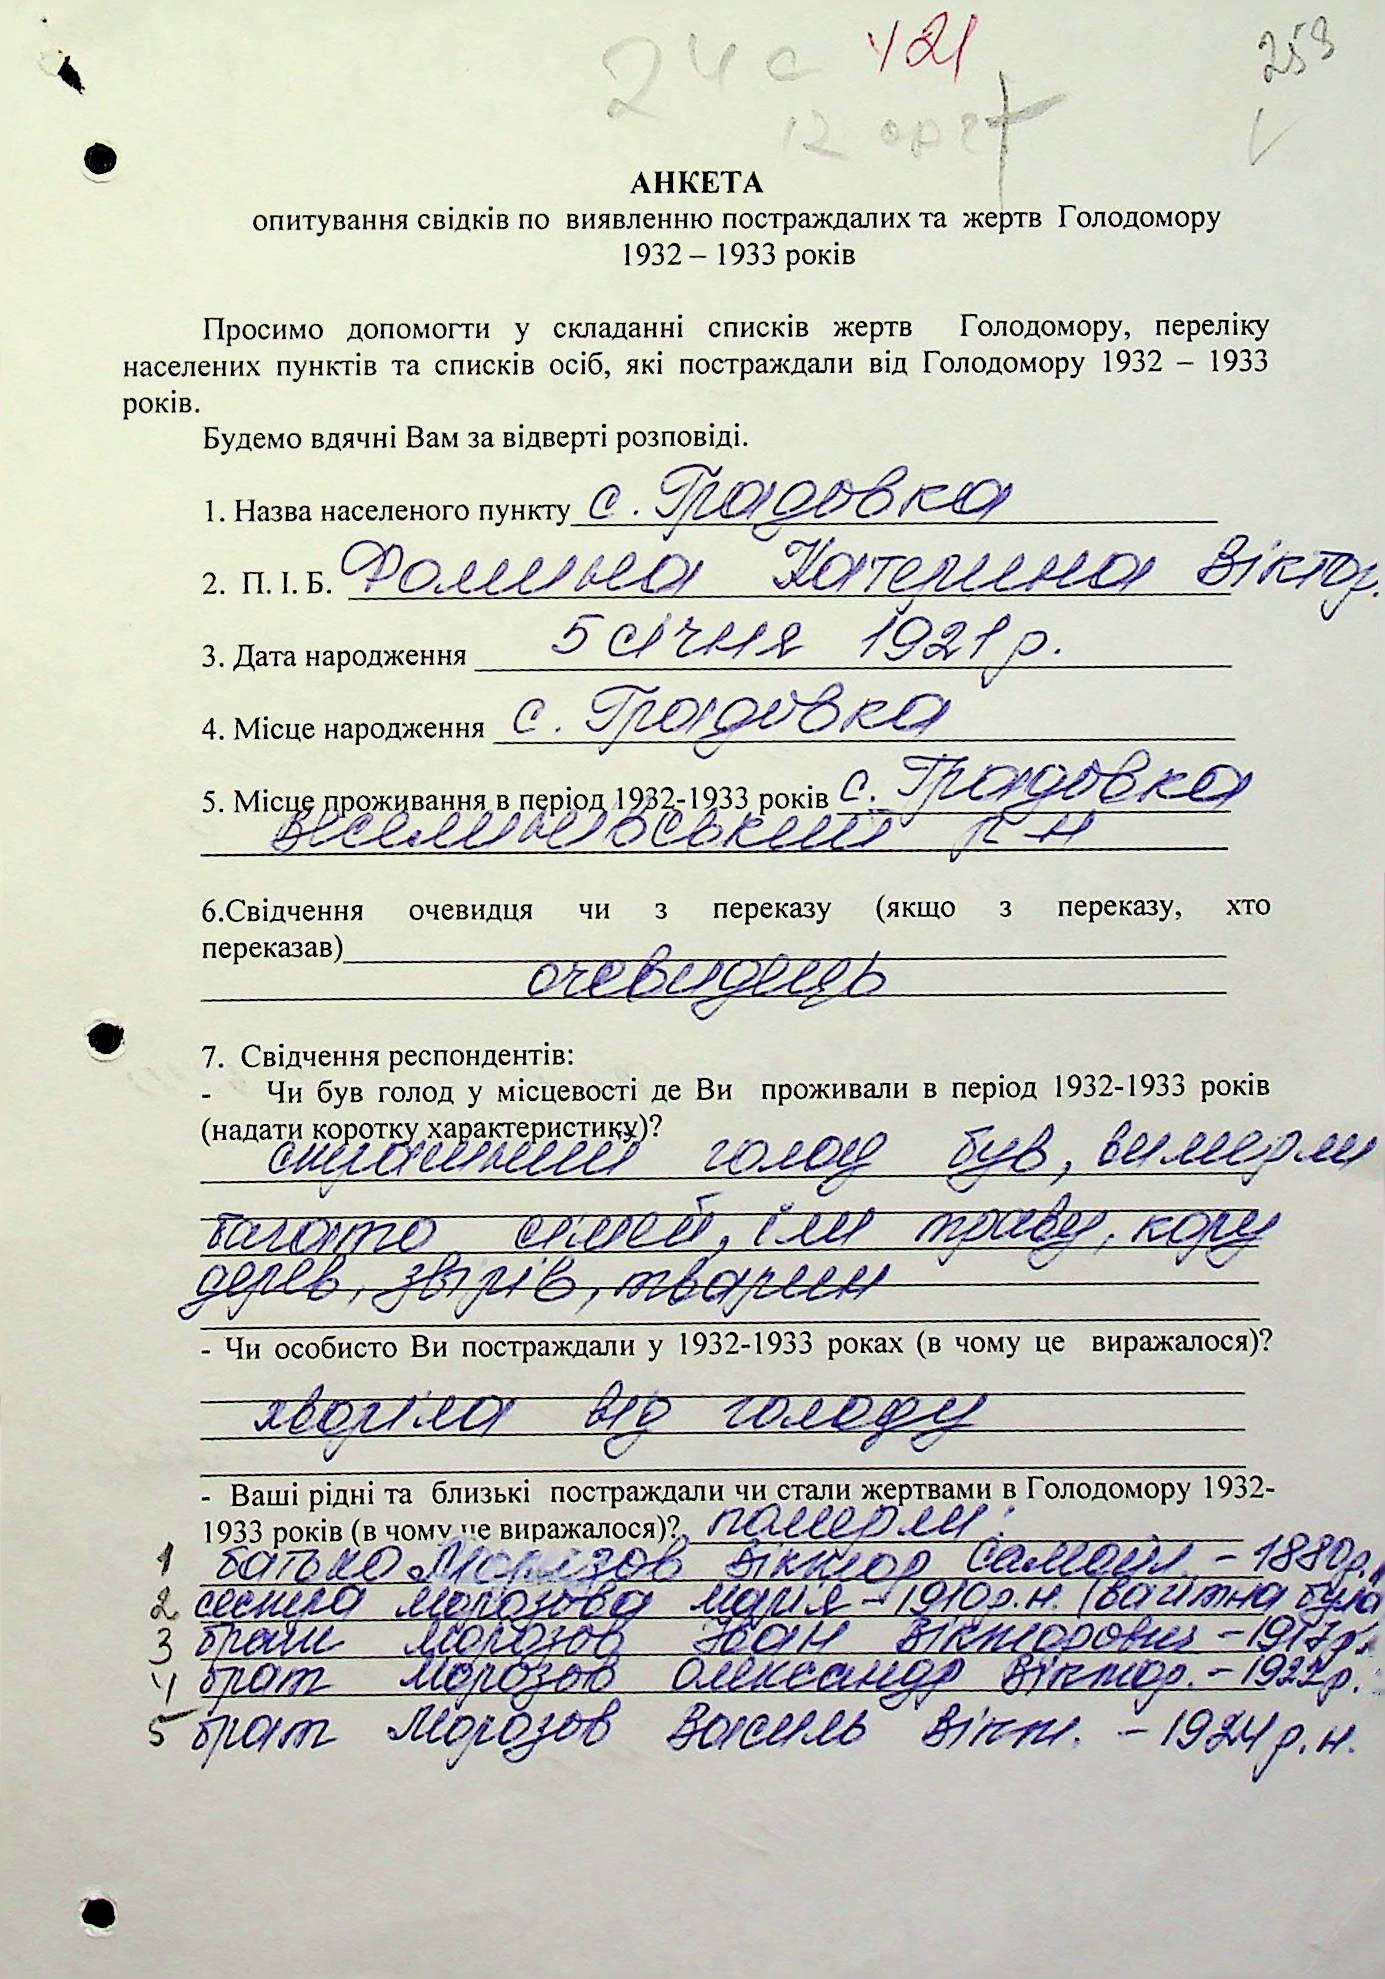 421
253
24 с
12
АНКЕТА
опитування свідків по виявленню постраждалих та жертв Голодомору
1932 – 1933 років
Просимо допомогти у складанні списків жертв Голодомору, переліку
населених пунктів та списків осіб, які постраждали від Голодомору 1932 – 1933
років.
Будемо вдячні Вам за відверті розповіді.
1. Назва населеного пункту с. Градовка
2. П. І. Б. Фомина Катерина Віктор.
3. Дата народження 5 січня 1921 р.
4. Місце народження с. Градовка
5. Місце проживання в період 1932-1933 років с. Градовка
Веселинівський р-н
6.Свідчення очевидця чи з переказу (якщо з переказу, хто
переказав)
очевидець
7. Свідчення респондентів:
- Чи був голод у місцевості де Ви проживали в період 1932-1933 років
(надати коротку характеристику)?
страшний голод був, вимерли
багато сімей, їли траву, кору
дерев, звірів, тварин
- Чи особисто Ви постраждали у 1932-1933 роках (в чому це виражалося)?
хворіла від голоду
- Ваші рідні та близькі постраждали чи стали жертвами в Голодомору 1932-
1933 років (в чому це виражалося)? померли:
1 батько Морозов Віктор Самойл. – 1880р.
2 сестра Морозова Марія – 1910р.н. (вагітна була
3 брат Морозов Іван Вікторович – 1917р.
4 брат Морозов Олександр Віктор. – 1922р.
5 брат Морозов Василь Вікт. – 1924р.н.